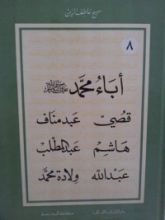 ٨
أباء محمد ﷺ
قصي عبد مناف
هاشم عبد المطلب
عبد الله ولادة محمد